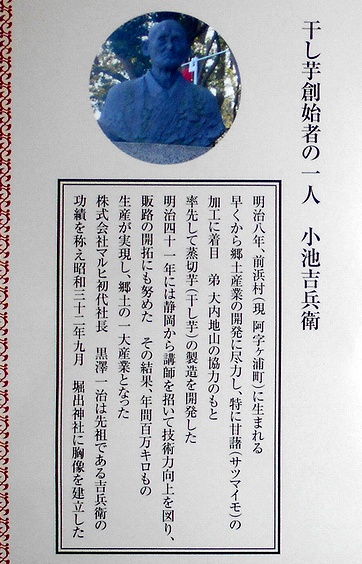 干し芋創始者の一人　小池吉兵衛
明治八年、前浜村（現 阿字ヶ浦町）に生まれる
早くから郷土産業の開発に尽力し、特に甘藷（サツマイモ）の
加工に着目　弟 大内地山の協力のもと
率先して蒸切芋（干し芋）の製造を開発した
明治四十一年には静岡から講師を招いて技術力向上を図り、
販路の開拓にも努めた　その結果、年間百万キロもの
生産が実現し、郷土の一大産業となった
株式会社マルヒ初代社長　黒澤一治は先祖である吉兵衛の
功績を称え昭和三十二年九月　堀出神社に胸像を建立した